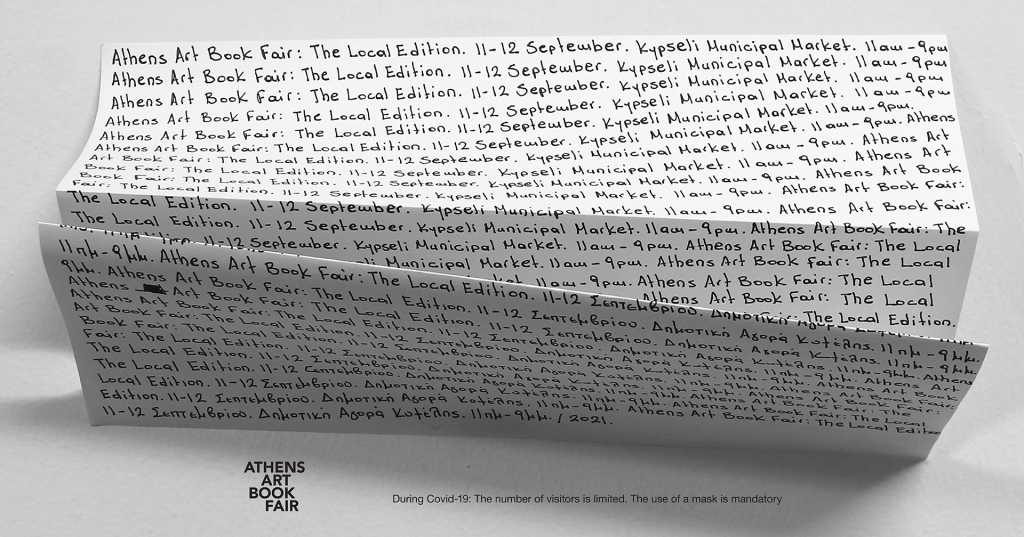 Athens Art Book Fair: The Local Edition. 11-12 September. Kypseli Municipal Market. 11am-9pm
Athens Art Book Fair: The Local Edition. 11-12 September. Kypseli Municipal Market. 11am-9pm
Athens Art Book Fair: The Local Edition. 11-12 September. Kypseli Municipal Market. 11am-9pm
Athens Art Book Fair: The Local Edition. 11-12 September. Kypseli Municipal Market. 11am-9pm
Athens Art Book Fair: The Local Edition. 11-12 September. Kypseli Municipal Market. 11am-9pm.
Athens Art Book Fair: The Local Edition. 11-12 September. Kypseli Municipal Market. 11am-9pm. Athens
Art Book Fair: The Local Edition. 11-12 September. Kypseli Municipal Market. 11am-9pm. Athens Art
Book Fair: The Local Edition. 11-12 September. Kypseli Municipal Market. 11am-9pm. Athens Art
Book Fair: The Local Edition. 11-12 September. Kypseli Municipal Market. 11am-9pm. Athens Art Book
Fair: The Local Edition. 11-12 September. Kypseli Municipal Market. 11am-9pm. Athens Art Book Fair:
The Local Edition. 11-12 September. Kypseli Municipal Market. 11am-9pm. Athens Art Book Fair:
The Local Edition. 11-12 September. Kypseli Municipal Market. 11am-9pm. Athens Art Book Fair: The
11-12 September. Kypseli Municipal Market. 11am-9pm. Athens Art Book Fair: The Local
Kypseli Municipal Market. 11am-9pm. Athens Art Book Fair: The Local
11am-9pm. Athens Art Book Fair: The Local
Athens Art Book Fair: The Local
The Local Edition.
11πμ-9μμ. Athens Art Book Fair: The Local Edition. 11-12 Σεπτεμβρίου. Δημοτική Αγορά
9μμ. Athens Art Book Fair: The Local Edition. 11-12 Σεπτεμβρίου. Δημοτική Αγορά Κυψέλης. 11πμ-9μμ.
Athens Art Book Fair: The Local Edition. 11-12 Σεπτεμβρίου. Δημοτική Αγορά Κυψέλης. 11πμ-9μμ.
Athens Art Book Fair: The Local Edition. 11-12 Σεπτεμβρίου. Δημοτική Αγορά Κυψέλης. 11πμ-9μμ. Athens
Book Fair: The Local Edition. 11-12 Σεπτεμβρίου. Δημοτική Αγορά Κυψέλης. 11πμ-9μμ. Athens Art
Fair: The Local Edition. 11-12 Σεπτεμβρίου. Δημοτική Αγορά Κυψέλης. 11πμ-9μμ. Athens Art Book
The Local Edition. 11-12 Σεπτεμβρίου. Δημοτική Αγορά Κυψέλης. 11πμ-9μμ. Athens Art Book Fair:
The Local Edition. 11-12 Σεπτεμβρίου. Δημοτική Αγορά Κυψέλης. 11πμ-9μμ. Athens Art Book Fair:
Local Edition. 11-12 Σεπτεμβρίου. Δημοτική Αγορά Κυψέλης. 11πμ-9μμ. Athens Art Book Fair: The Local
Edition. 11-12 Σεπτεμβρίου. Δημοτική Αγορά Κυψέλης. 11πμ-9μμ. Athens Art Book Fair: The Local Edition
11-12 Σεπτεμβρίου. Δημοτική Αγορά Κυψέλης. 11πμ-9μμ. / 2021.
ATHENS
ART
BOOK
FAIR
During Covid-19: The number of visitors is limited. The use of a mask is mandatory